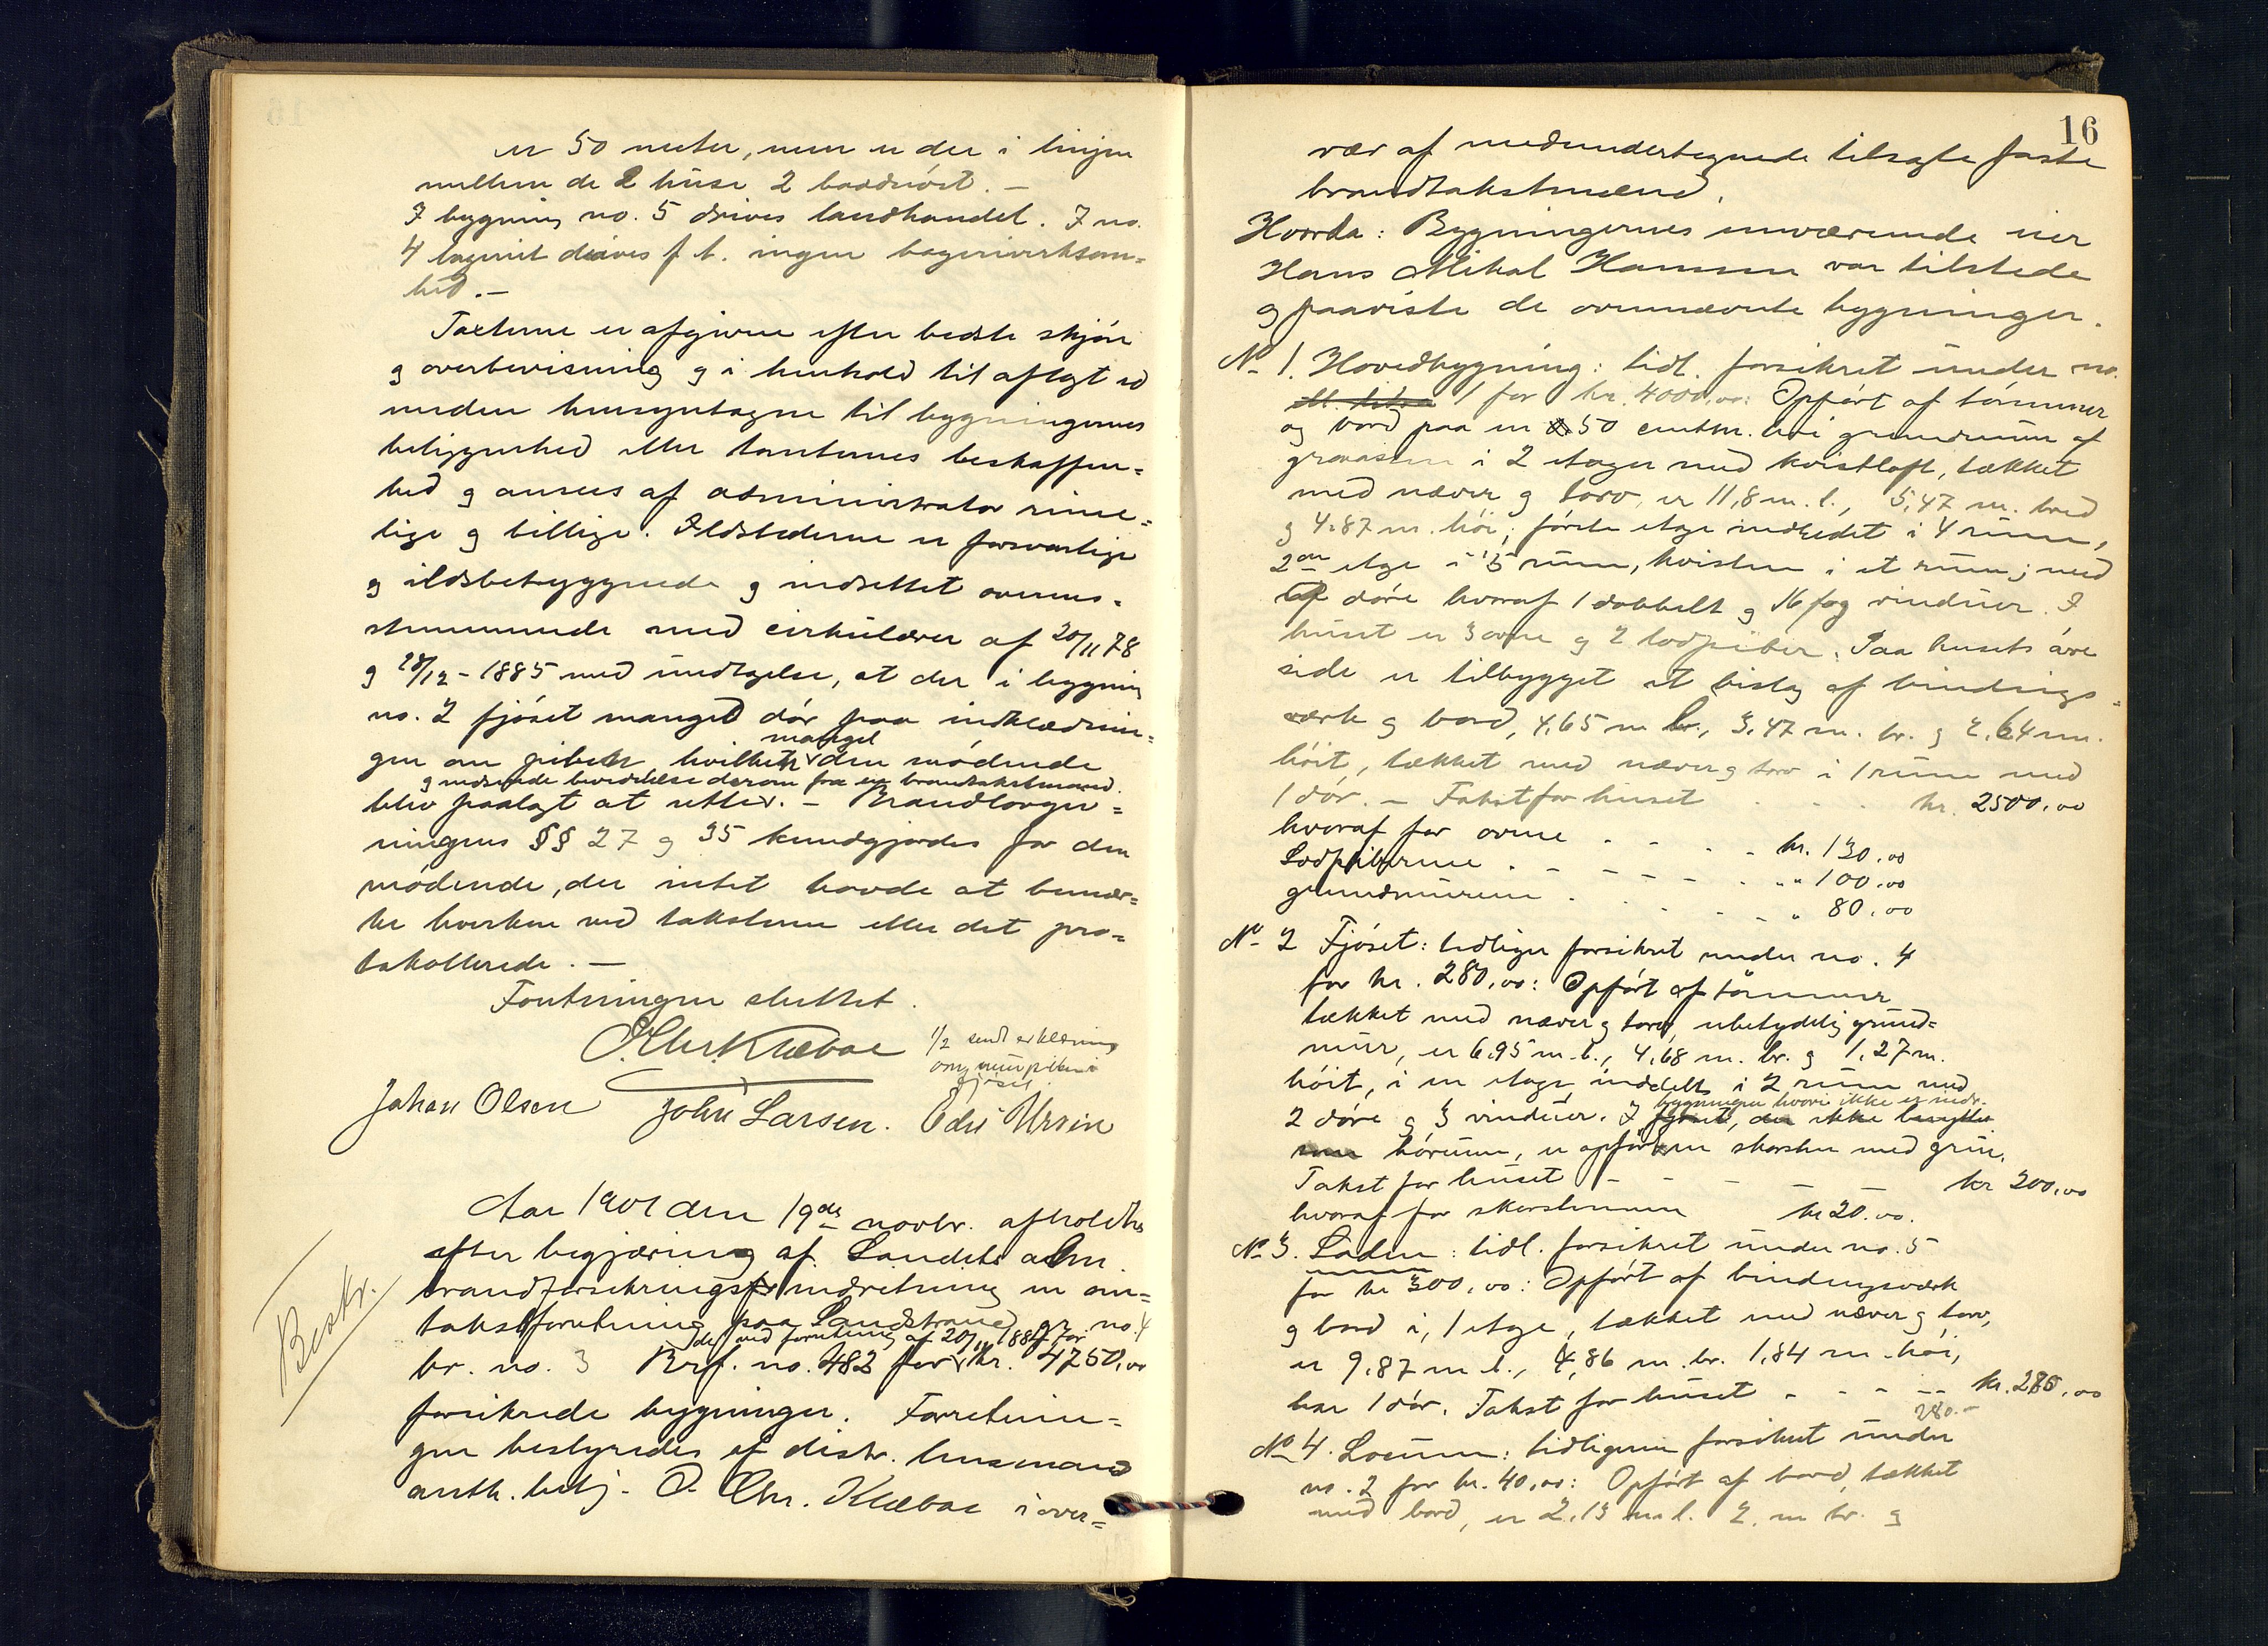 er 50 meter, men er der i linjen
mellem de 2 huse 2 baadnöst. —
I bygning no. 5 drives landhandel. I no.
4 bageriet drives f. t. ingen bagerivirksom=
hed. —
Taxterne er afgivne efter bedste skjön
og overbevisning og i henhold til aflagt ed
uden hensyntagen til bygningernes
beliggenhed eller tomternes beskaffen=
hed og ansees af administrator rime=
lige og billige. Ildstederne er forsvarlige
og ildsbetryggende og indsettet overens=
stemmende med cirkulærer af 20/11 78
og 28/12 - 1885 med undtagelse, at der i bygning
no. 2 fjöset manged dör paa indklædnin=
gen om piben hvilken mangel den mödende
og indsende bevidnelse derom fra en brandtakstmand.
blev paalagt at rette. — Brandlovgiv=
ningens §§ 27 og 35 kundgjordes for den
mödende, der intet havde at bemær=
ke hverken ved taksterne eller det pro=
tokollerede. —
Forretningen sluttet.
O. Chr. Klæboe
1/2 sendt erklæring
om murpiben i
fjöset.
Johan Olsen John Larsen. Edv. Ursin
Bestr.
Aar 1901 den 19de novbr. afholdtes
efter begjæring af Landets alm.
brandforsikringsindretning en om=
takstforretning paa Landstrand gr. no. 4
de ved forretning af 20/11 1884 for
br. no. 3 Brf. no. 482 for kr. 4750,00
forsikrede bygninger. Forretnin=
gen bestyredes af distr. lensmand
auth. betj. O. Chr. Klæboe i over=
16
vær af medundertegnede tilsagte faste
brandtakstmænd.
Hvorda: Bygningernes nuværende eier
Hans Mikal Hansen var tilstede
og paaviste de ovennævnte bygninger.
No 1. Hovedbygning: tidl. forsikret under no.
1 for kr. 4000,00: Opfört af tömmer
og bord paa en 50 centm. höi grundmur af
graasten i 2 etager med kvistloft, tækket
med næver og torv, er 11,8 m. l., 5,47 m. bred
og 4.87 m. höi; förste etage indredet i 4 rum,
2den etage i 5 rum, kvisten i et rum; med
döre hvoraf 1 dobbelt og 16 fag vinduer. I
huset er 3 ovne og 2 lodpiber. Paa husets övre
side er tilbygget et bislag af bindings=
værk og bord, 4,65 m l., 3,47 m. br. og 2,64 m.
höit, tækket med næver og torv i 1 rum med
1 dör. — Takst for huset . . . kr. 2500,00
hvoraf for ovne . . . . kr. 130,00
Lodpiberne . . . . " " 100,00
grundmuren . . . . " 80,00
No 2 Fjöset: tidligere forsikret under no. 4
for kr. 280,00: Opfört af tömmer
tækket med næver og torv, ubetydelig grund=
mur, er 6,95 m. l., 4,68 m. br. og 1,27 m.
höit, i en etage inddelt i 2 rum med
bygningen hvori ikke er indr.
2 döre og 3 vinduer. I fjöset, der ikke benyttes
som hörum, er opfört en skorsten med grue.
Takst for huset — — — — kr 200,00
hvoraf for skorstenen kr 20.00.
No 3. Laden: tidl. forsikret under no. 5
for kr 300,00: Opfört af bindingsværk
og bord i 1 etage, tækket med næver og torv,
er 9.87 m l., 4,86 m. br. 1,84 m. höi,
har 1 dör. Takst for huset - - - -- kr. 280,00
280.-
No 4. Locum: tidligere forsikret under
no. 2 for kr. 40,00: Opfört af bord, tækket
med bord, er 2.13 m. l. 2. m br. og